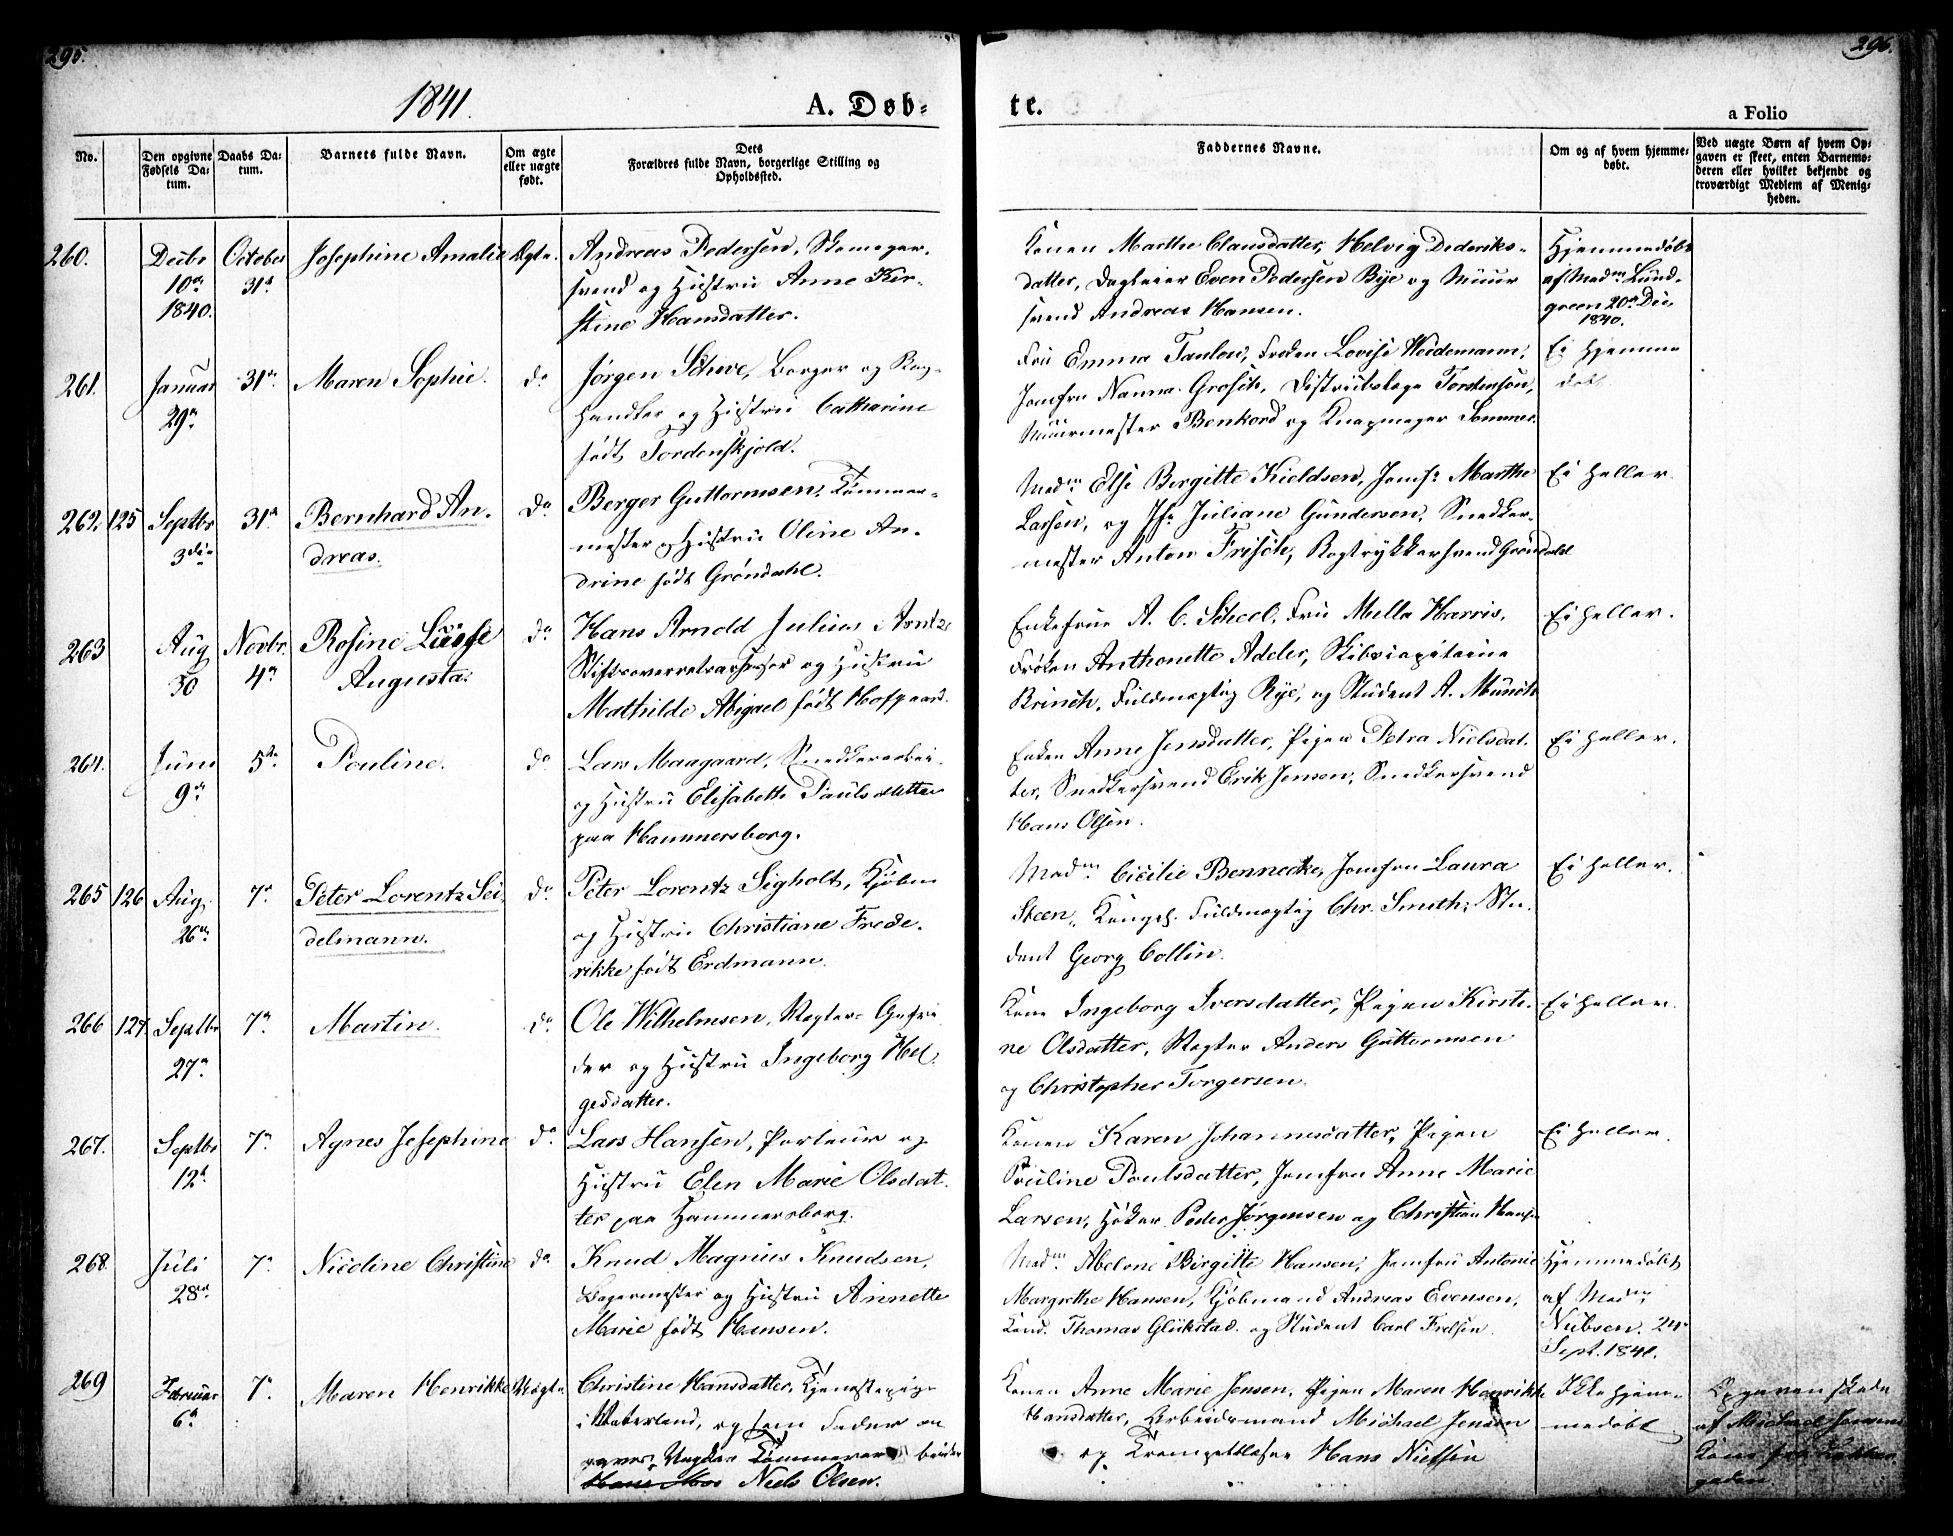 295.
296.
1841.
A. Døb-
te.
a Folio
No.
Den opgivne Fødsels Da-
tum.
Daabs Da-
tum.
Barnets fulde Navn.
Om ægte
eller uægte
født.
Dets
Forældres fulde Navn, borgerlige Stilling og
Opholdssted.
Faddernes Navne.
Om og af hvem hjemme-
døbt.
Ved uægte Børn af hvem Op-
gaven er skeet, enten Barnemo-
deren eller hvilket bekjendt og
troværdigt Medlem af Menig-
heden.
260.
Decbr
10de
1840.
October
31te
Josephine Amalie
Ægte.
Andreas Pedersen, Skomager-
svend og Hustru Anne Kir-
stine Hansdatter.
Konen Marthe Clausdatter, Helvig Dideriks-
datter, Dagleier Even Pedersen Bye og Muur
svend Andreas Hansen.
Hjemmedøbt
af Madm Lund-
green 20de Dec.
1840.
261.
Januar
29de
31te
Maren Sophie.
do
Jørgen Schive, Borger og
handler og Hustru Catharine
født Tordenskjold.
Fru Emma, Frøken Lovise Weidemann,
Jomfru Nanna Grosch, Districtslæge Torstensen,
Muurmester Benkord og Knapmager Sommer.
Ei hjemme
døbt
262.
125
Septbr
3die
31te
Bernhard An-
dreas.
do
Berger Guttormsen, Tømmer-
mester og Hustru Oline An-
drine født Grøndahl.
Madm Else Bergitte Kieldsen, Jomfr Marthe
Larsen, og Jfr Juliane Gundersen, Snedker-
mester Anton Frisch, Bogtrykkersvend Grøndahl
Ei heller.
263
Aug
30
Novbr.
4de
Rosine Lüise
Augusta.
do
Hans Arnold Julius Arntz,
Stiftsoverretsassessor og Hustru
Mathilde Abigael født Hofgaard.
Enkefrue A. C. Scheel, Fru Mella Harris,
Frøken Anthonette Adeler, Skibscapitaine
Brinch, Fuldmægtig Rye, og Student A. Munch
Ei heller.
264.
Juni
9de
5te
Pouline.
do
Lars Maagaard, Snedkerarbei.
og Hustru Elisabeth Paulsdatter
paa Hammersborg.
Enken Anne Jensdatter, Pigen Petra Nielsdat-
ter, Snedkersvend Erik Jensen, Snedkersvend
Hans Olsen.
Ei heller.
265
126
Aug.
26de
7de
Peter Lorentz Sei-
delmann.
do
Peter Lorentz Sigholt, Kjøbm
og Hustru Christiane Frede-
rikke født Erdmann.
Madm Cicilie Bennecke, Jomfru Laura
Steen, Kongel. Fuldmægtig Chr. Smith, Stu-
dent Georg Collin.
Ei heller.
266
127.
Septbr
27de
7de
Martin.
do
Ole Wilhelmsen, Vægter
og Hustru Ingeborg Hel-
gesdatter.
Kone Ingeborg Iversdatter, Pigen Kirsti-
ne Olsdatter, Vægter Anders Guttormsen
og Christopher Torgersen.
Ei heller.
267.
Septbr
12te
7de
Agnes Josephine
do
Lars Hansen, Porteur og
Hustru Elen Marie Olsdat-
ter paa Hammersborg.
Konen Karen Johannesdatter, Pigen
Pouline Poulsdatter, Jomfru Anne Marie
Larsen, Høker Peder Jørgensen og Christian Hansen
Ei heller.
268.
Juli
28de
7de
Nicoline Christine
do
Knud Magnus Knudsen,
Bagermester og Hustru Annette
Marie født Hansen.
Madm Abelone Birgitte Hansen, Jomfru Antonie
Margrethe Hansen, Kjøbmand Andreas Evensen,
Cand. Thomas Glükstad og Student Carl Frelsen.
Hjemmedøbt
af Madm
Nubsen. 24de
Sept. 1841.
269
Februar
6te
7de
Maren Henrikke
Uægte.
Christine Hansdatter, Tjenestepige
i Vaterland, og som Fader an
Ungkar Tømmermand
Niels Olsen.
Konen Anne Marie Jensen, Pigen Maren Henrikke
Hansdatter, Arbeidsmand Michael Jensen
og Trompetblæser Hans Nielsen
Ikke hjem-
medøbt
Opgaven skede
af Michael Jensens
Kone
gaden.